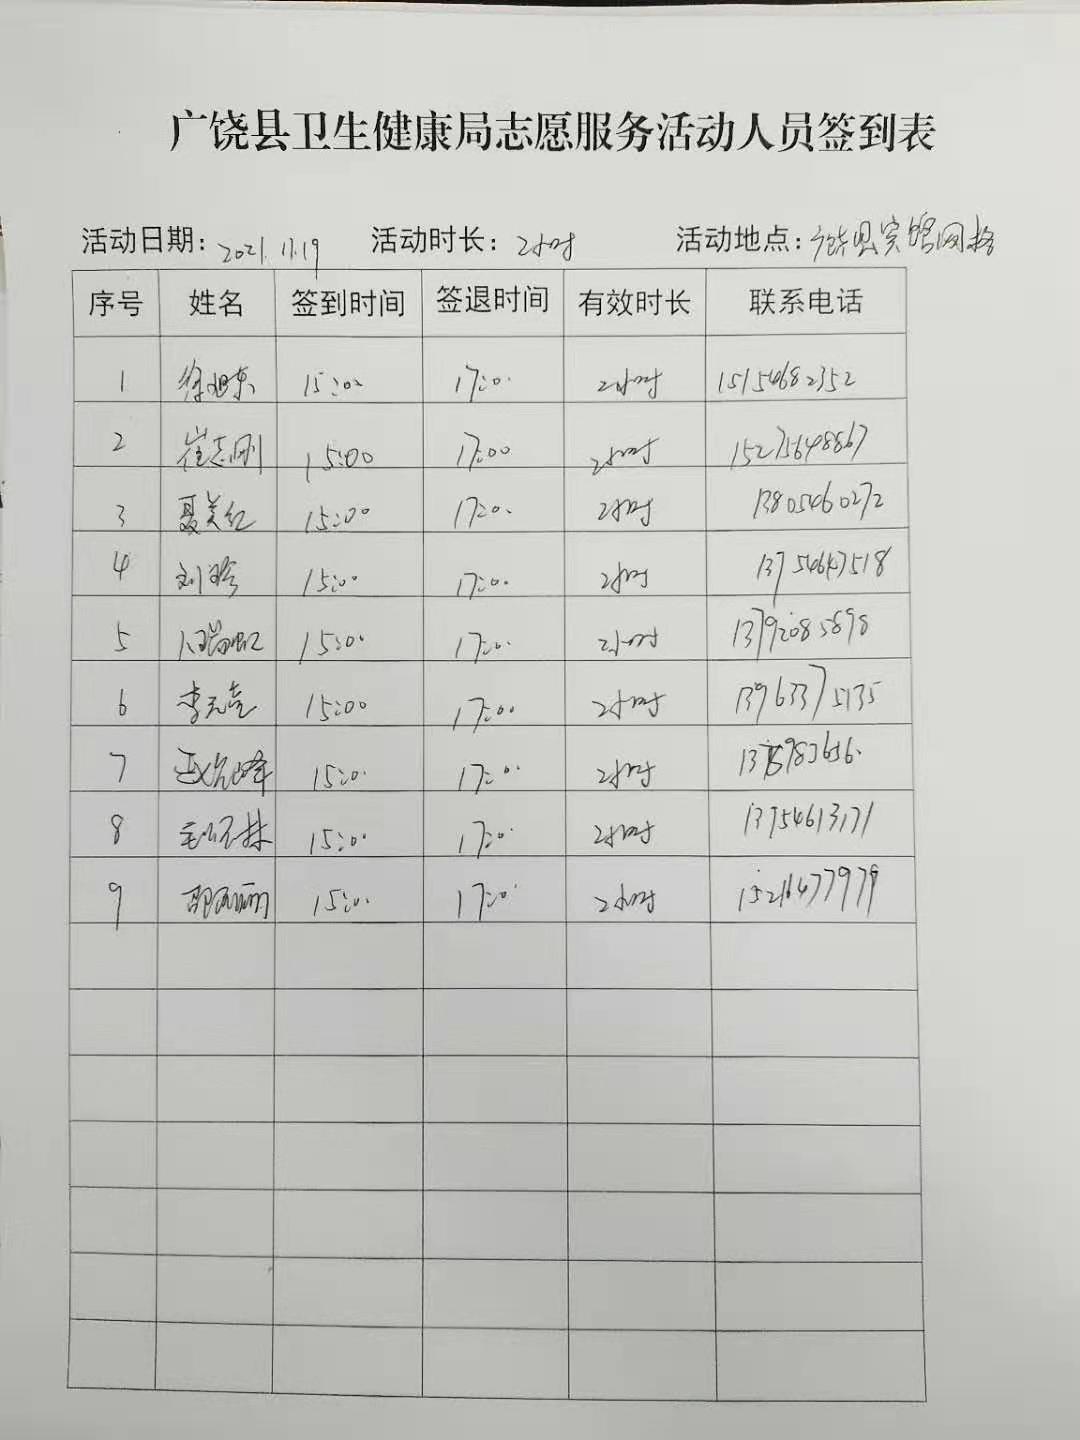 广饶县卫生健康局志愿服务活动人员签到表
活动日期: 2021.11.19 活动时长: 2小时 活动地点: 广饶县宾馆网格
序号 姓名 签到时间 签退时间 有效时长 联系电话
1 徐旭东 15:00 17:00 2小时 15154682352
2 崔志刚 15:00 17:00 2小时 15275648867
3 聂美红 15:00 17:00 2小时 13805460272
4 刘 15:00 17:00 2小时
5 15:00 17:00 2小时 13792085898
6 李元亮 15:00 17:00 2小时 13963375135
7 15:00 17:00 2小时
8 15:00 17:00 2小时 13754613171
9 15:00 17:00 2小时